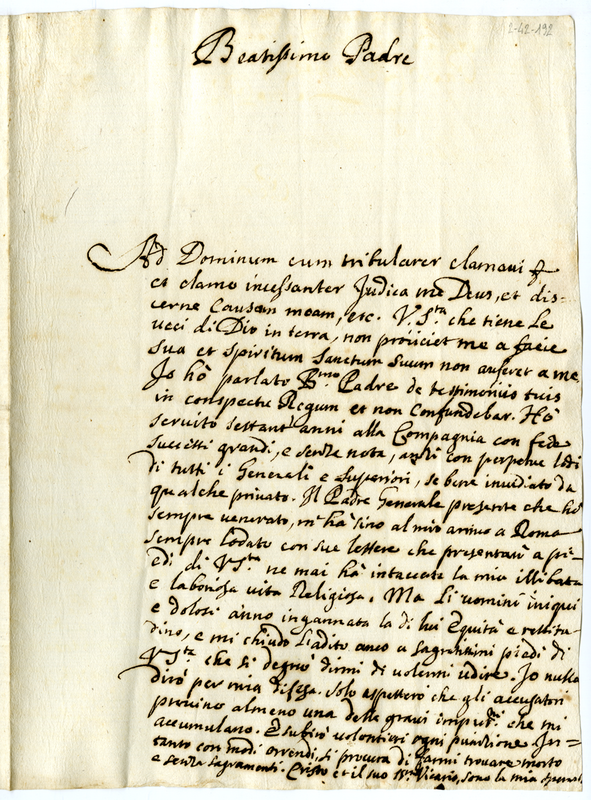 2-42-192
Beatissimo Padre
Ad Dominum cum tribularer clamavi
et clamo incessanter Judica me Deus, et dis-
cerne Causam meam, etc. V. S.tà che tiene le
veci di Dio in terra, non proiiciet me a facie
sua et spiritum sanctum suum non auferet a me.
Io hò parlato B.mo Padre de testimoniis tuis
in conspectu Regum et non confundebar. Hò
servito sessant' anni alla Compagnia con fede
successi grandi, e senza nota, anzi con perpetue lodi
di tutti i Generali e superiori, se bene invidiato da
qualche privato. Il Padre Generale presente che hò
sempre venerato, m'hà sino al mio arrivo a Roma
sempre lodato con sue lettere che presentarò a pie-
di di V. S.tà ne mai hà intaccata la mia illibata
e laboriosa vita Religiosa. Ma li uomini iniqui
e dolosi anno ingannata la di lui Equità e rettitu-
dine, e mi chiudo l'adito anco a sagratissimi piedi di
V. S.tà che si degnò dirmi di volermi udire. Io nulla
dirò per mia difesa. Solo aspetterò che gli accusatori
provino almeno una delle gravi che mi
accumulano. E subirò volontieri ogni punizione. In-
tanto con modi orrendi, si procura di farmi trovare morto
e senza sagramenti. Cristo et il suo Vicario, sono la mia